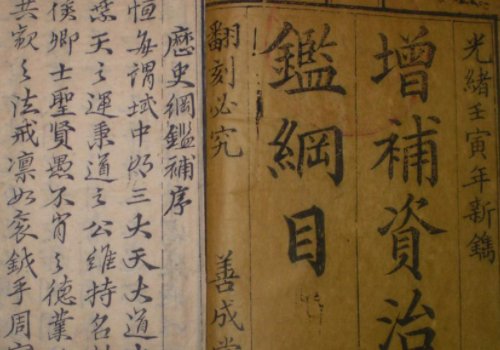 光緒壬寅年新鐫
增補資治
鑑綱目
翻刻必究 善成堂
歷史綱鑑補序
恒每謂域中有三大天大道
天之運秉道之公維持名
侯卿士聖賢愚不肖之德業
之法戒凜如袞鉞乎周